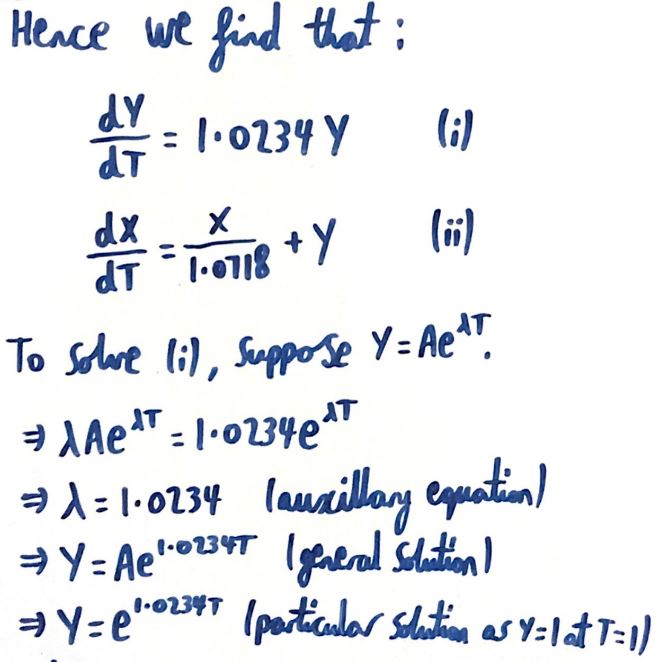 Hence we find that :
dY/dT = 1·0234 Y (i)
dX/dT = X/1·0718 + Y (ii)
To solve (i), suppose Y = Ae^λT.
⇒ λAe^λT = 1·0234e^λT
⇒ λ = 1·0234 (auxillary equation)
⇒ Y = Ae^1·0234T (general solution)
⇒ Y = e^1·0234T (particular solution as Y=1 at T=1)